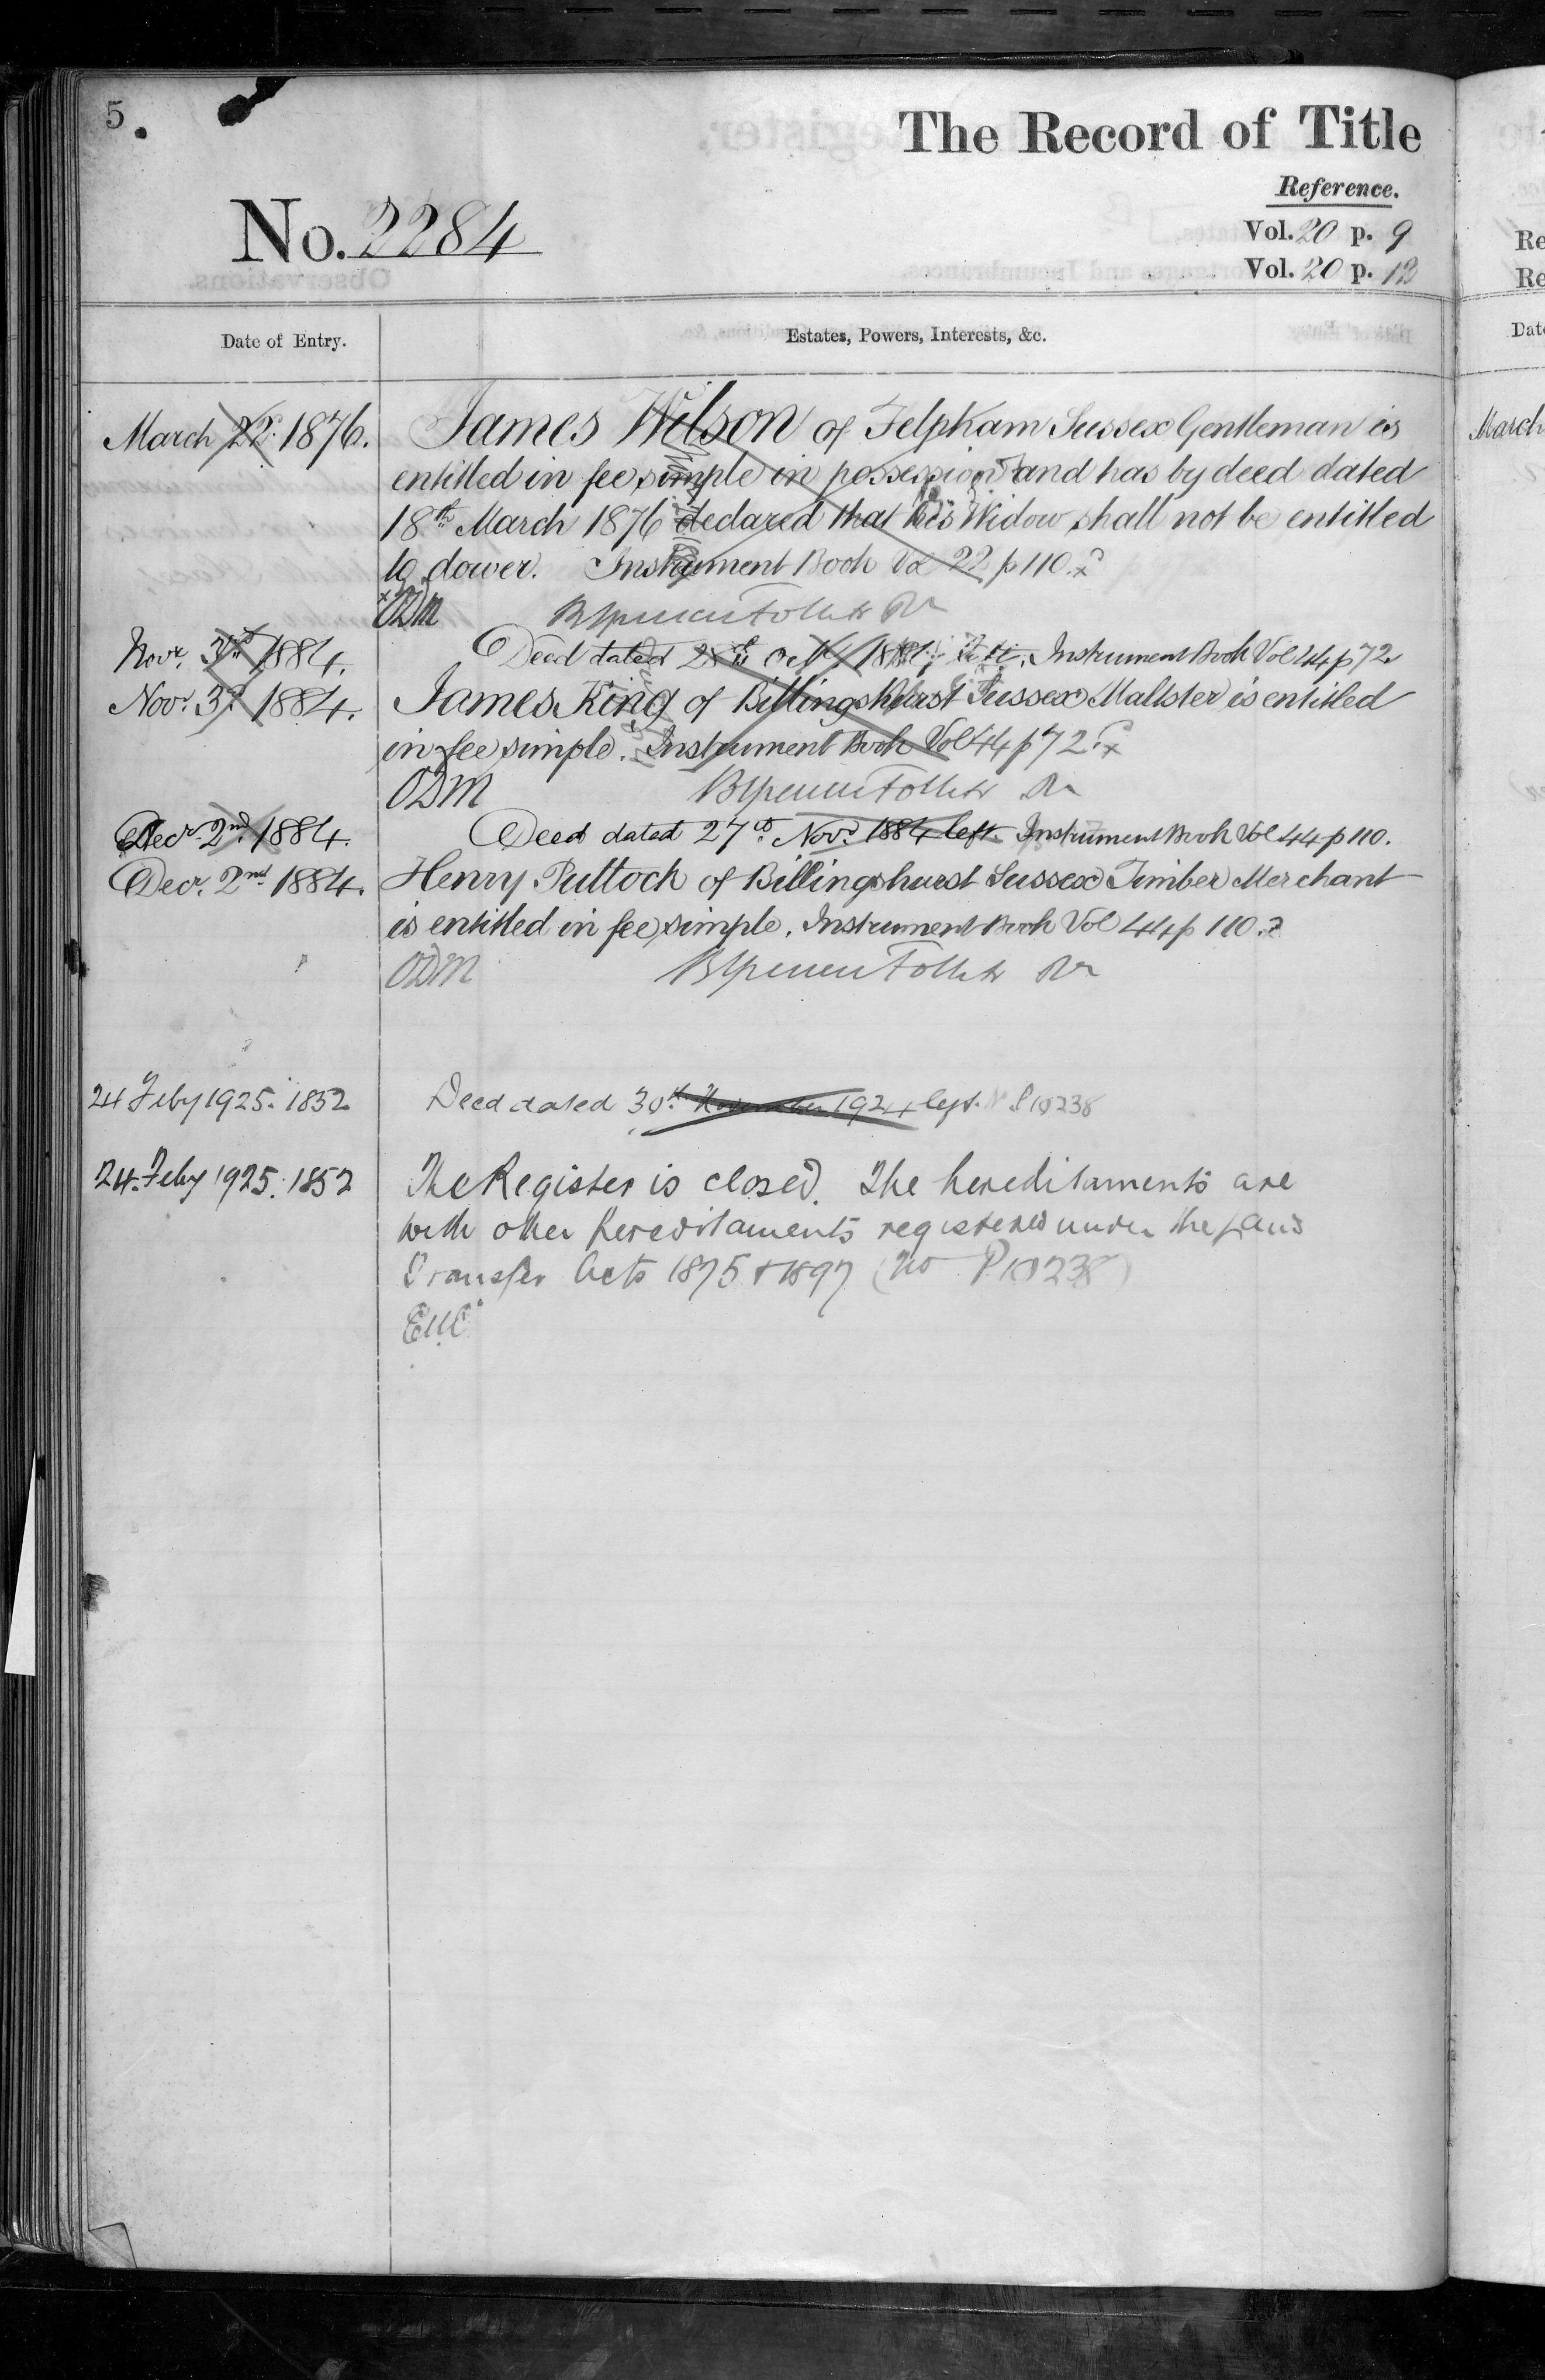 5
The Record of Title
Reference.
No. 2284
Vol. 20 p. 9
Vol. 20 p. 13
Date of Entry.
Estates, Powers, Interests, &c.
March 22 1876.
James Wilson of Felpham Sussex Gentleman is
entitled in fee simple in possession and has by deed dated
18th March 1876 declared that his Widow shall not be entitled
to dower. Instrument Book Vol 22 p 110.
ODM
Novr. 3rd 1884.
Deed dated 28th Octr 1884 left. Instrument Book Vol 44 p 72
Novr. 3rd 1884.
James King of Billingshurst Sussex Maltster is entitled
in fee simple. Instrument Book Vol 44 p 72.
ODM
Decr. 2nd 1884.
Deed dated 27th Novr. 1884 left. Instrument Book Vol 44 p 110.
Decr. 2nd 1884.
Henry Puttock of Billingshurst Sussex Timber Merchant
is entitled in fee simple. Instrument Book Vol 44 p 110.
ODM
24 Feby 1925. 1852
Deed dated 30th November 1924 left. No P 10238
24. Feby 1925. 1852
The Register is closed. The hereditaments are
with other hereditaments registered under the Land
Transfer Acts 1875 & 1897 (No P. 10238)
March
Re
Re
Date